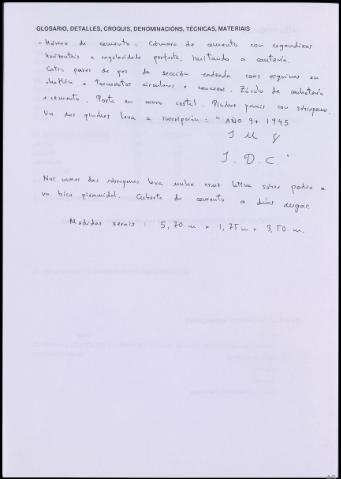 GLOSARIO, DETALLES, CROQUIS, DENOMINACIÓNS, TÉCNICAS, MATERIAIS
- Hórreo de cemento. Cámara de cemento con
horizontais e regularidade perfecta, imitando a cantería.
Catro pares de pes de sección cadrada con esquinas en
chaflán e tornarratos circulares e . Zócalo de cachotería
e cemento. Porta en muro costal. Pindas penais con sobrepena.
Un dos pindas leva a inscripción: " AÑO 94 1945
J M
J. D. C."
Nos cumes das sobrepenas leva unha cruz latina sobre pedra e
un bico piramidal. Cuberta de cemento a dúas augas.
Medidas xerais: 5,70 m x 1,75 m x 3,50 m.